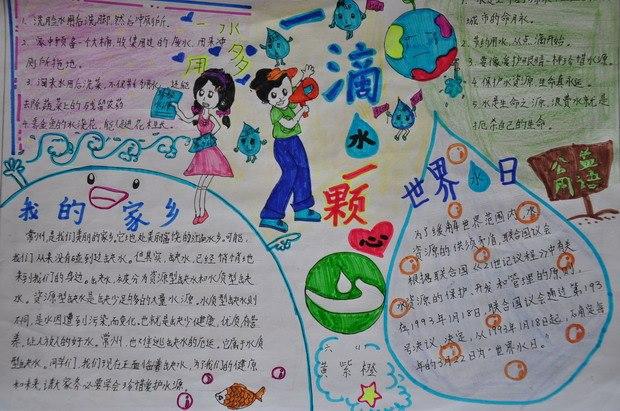 1、洗脸水用后洗脚,然后冲厕所。
2、家中预备一个大桶,收集用过的废水,用来冲
厕所拖地。
3、淘米水用后洗菜,不仅节约用水,还能
去除蔬菜上的残留农药
4、养鱼的水浇花,能促进花木生长
一水多用
一滴水一颗
城市的命用水。
2、节约用水,从点滴开始。
3、要像爱护眼睛一样珍惜水源。
4、保护水资源,生命真永远。
5、水是生命之源,浪费水就是
扼杀自己的生命。
公益
用语
我的家乡
常州,是我们美丽的家乡,它地处美丽富饶的江南水乡。可能,
我们从来没有碰到过缺水。但其实,缺水,已经悄悄地
来到我们的身边。缺水,应该分为资源型缺水和水质型缺
水。资源型缺水是缺少足够的大量水源。水质型缺水则
不同,是水因遭到污染而变化。也就是缺少健康,优质有营
养,让人放心的好水。常州,也不能逃缺水的厄运。它属于水质
型缺水。同学们,我们现在正面临着缺水,为了我们的健康
和未来,请大家务必要学会珍惜爱护水源。
世界水日
为了缓解世界范围内水
资源的供须矛盾,联合国会议
根据联合国《21世纪议程》中有关
水资源的保护、开发和管理的原则,
在1993年1月18日,联合国议会通过第193
号决议,决定,从1993年1月18日起,
年的3月22日为“世界水日。”
黄紫橙